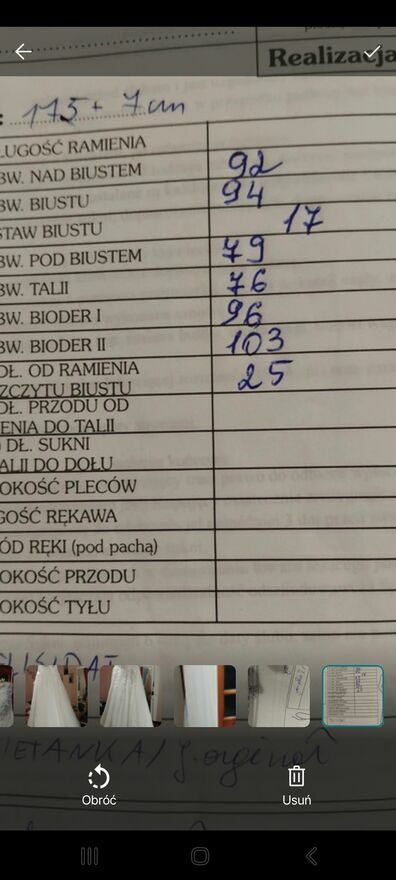 Realizacja
: 175 + 7 cm
ŁUGOŚĆ RAMIENIA
BW. NAD BIUSTEM 92
BW. BIUSTU 94
STAW BIUSTU 17
BW. POD BIUSTEM 79
BW. TALII 76
BW. BIODER I 96
BW. BIODER II 103
DŁ. OD RAMIENIA
ZCZYTU BIUSTU 25
DŁ. PRZODU OD
IENIA DO TALII
) DŁ. SUKNI
ALII DO DOŁU
OKOŚĆ PLECÓW
GOŚĆ RĘKAWA
ÓD RĘKI (pod pachą)
OKOŚĆ PRZODU
OKOŚĆ TYŁU
Obróć
Usuń